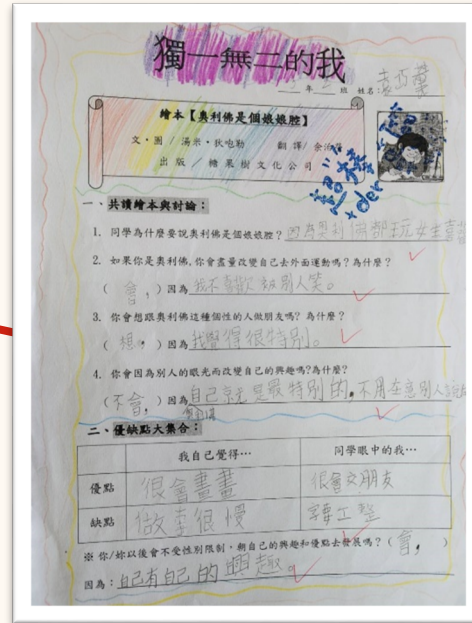 獨一無二的我
年 班 姓名:
繪本【奧利佛是個娘娘腔】
文‧圖 / 湯米‧狄咆勒 翻譯/ 余治瑩
出版 / 糖果樹文化公司
超棒
一、共讀繪本與討論:
1. 同學為什麼要說奧利佛是個娘娘腔? 因為奧利佛都玩女生喜歡
2. 如果你是奧利佛,你會盡量改變自己去外面運動嗎?為什麼?
( 會, )因為 我不喜歡被別人笑。
3. 你會想跟奧利佛這種個性的人做朋友嗎? 為什麼?
( 想, )因為 我覺得很特別。
4. 你會因為別人的眼光而改變自己的興趣嗎?為什麼?
(不會, )因為 自己就是最特別的,不用在意別人
二、優缺點大集合:
我自己覺得… 同學眼中的我…
優點 很會畫畫 很會交朋友
缺點 做事很慢 字要工整
※ 你/妳以後會不受性別限制,朝自己的興趣和優點去發展嗎?( 會, )
因為:自己有自己的興趣。